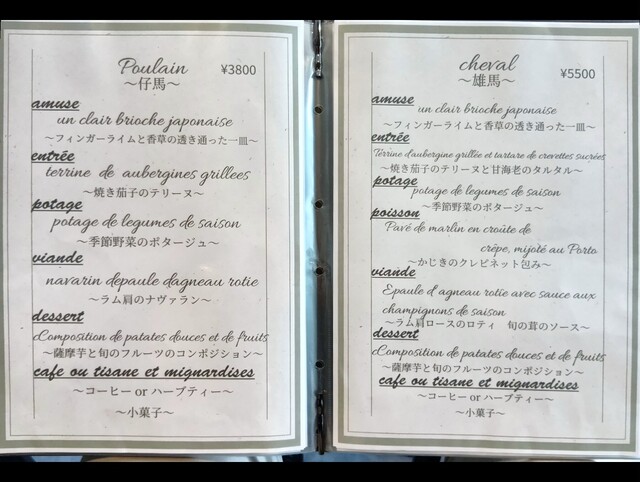 Poulain
¥3800
～仔馬～
amuse
un clair brioche japonaise
～フィンガーライムと香草の透き通った一皿～
entrée
terrine de aubergines grillees
～焼き茄子のテリーヌ～
potage
potage de legumes de saison
～季節野菜のポタージュ～
viande
navarin depaule dagneau rotie
～ラム肩のナヴァラン～
dessert
Composition de patates douces et de fruits
～薩摩芋と旬のフルーツのコンポジション～
cafe ou tisane et mignardises
～コーヒー or ハーブティー～
～小菓子～
cheval
¥5500
～雄馬～
amuse
un clair brioche japonaise
～フィンガーライムと香草の透き通った一皿～
entrée
Terrine d'aubergine grillée et tartare de crevettes sucrées
～焼き茄子のテリーヌと甘海老のタルタル～
potage
potage de legumes de saison
～季節野菜のポタージュ～
poisson
Pavé de marlin en croûte de
crêpe, mijoté au Porto
～かじきのクレピネット包み～
viande
Epaule d agneau rotie avec sauce aux
champignons de saison
～ラム肩ロースのロティ 旬の茸のソース～
dessert
Composition de patates douces et de fruits
～薩摩芋と旬のフルーツのコンポジション～
cafe ou tisane et mignardises
～コーヒー or ハーブティー～
～小菓子～